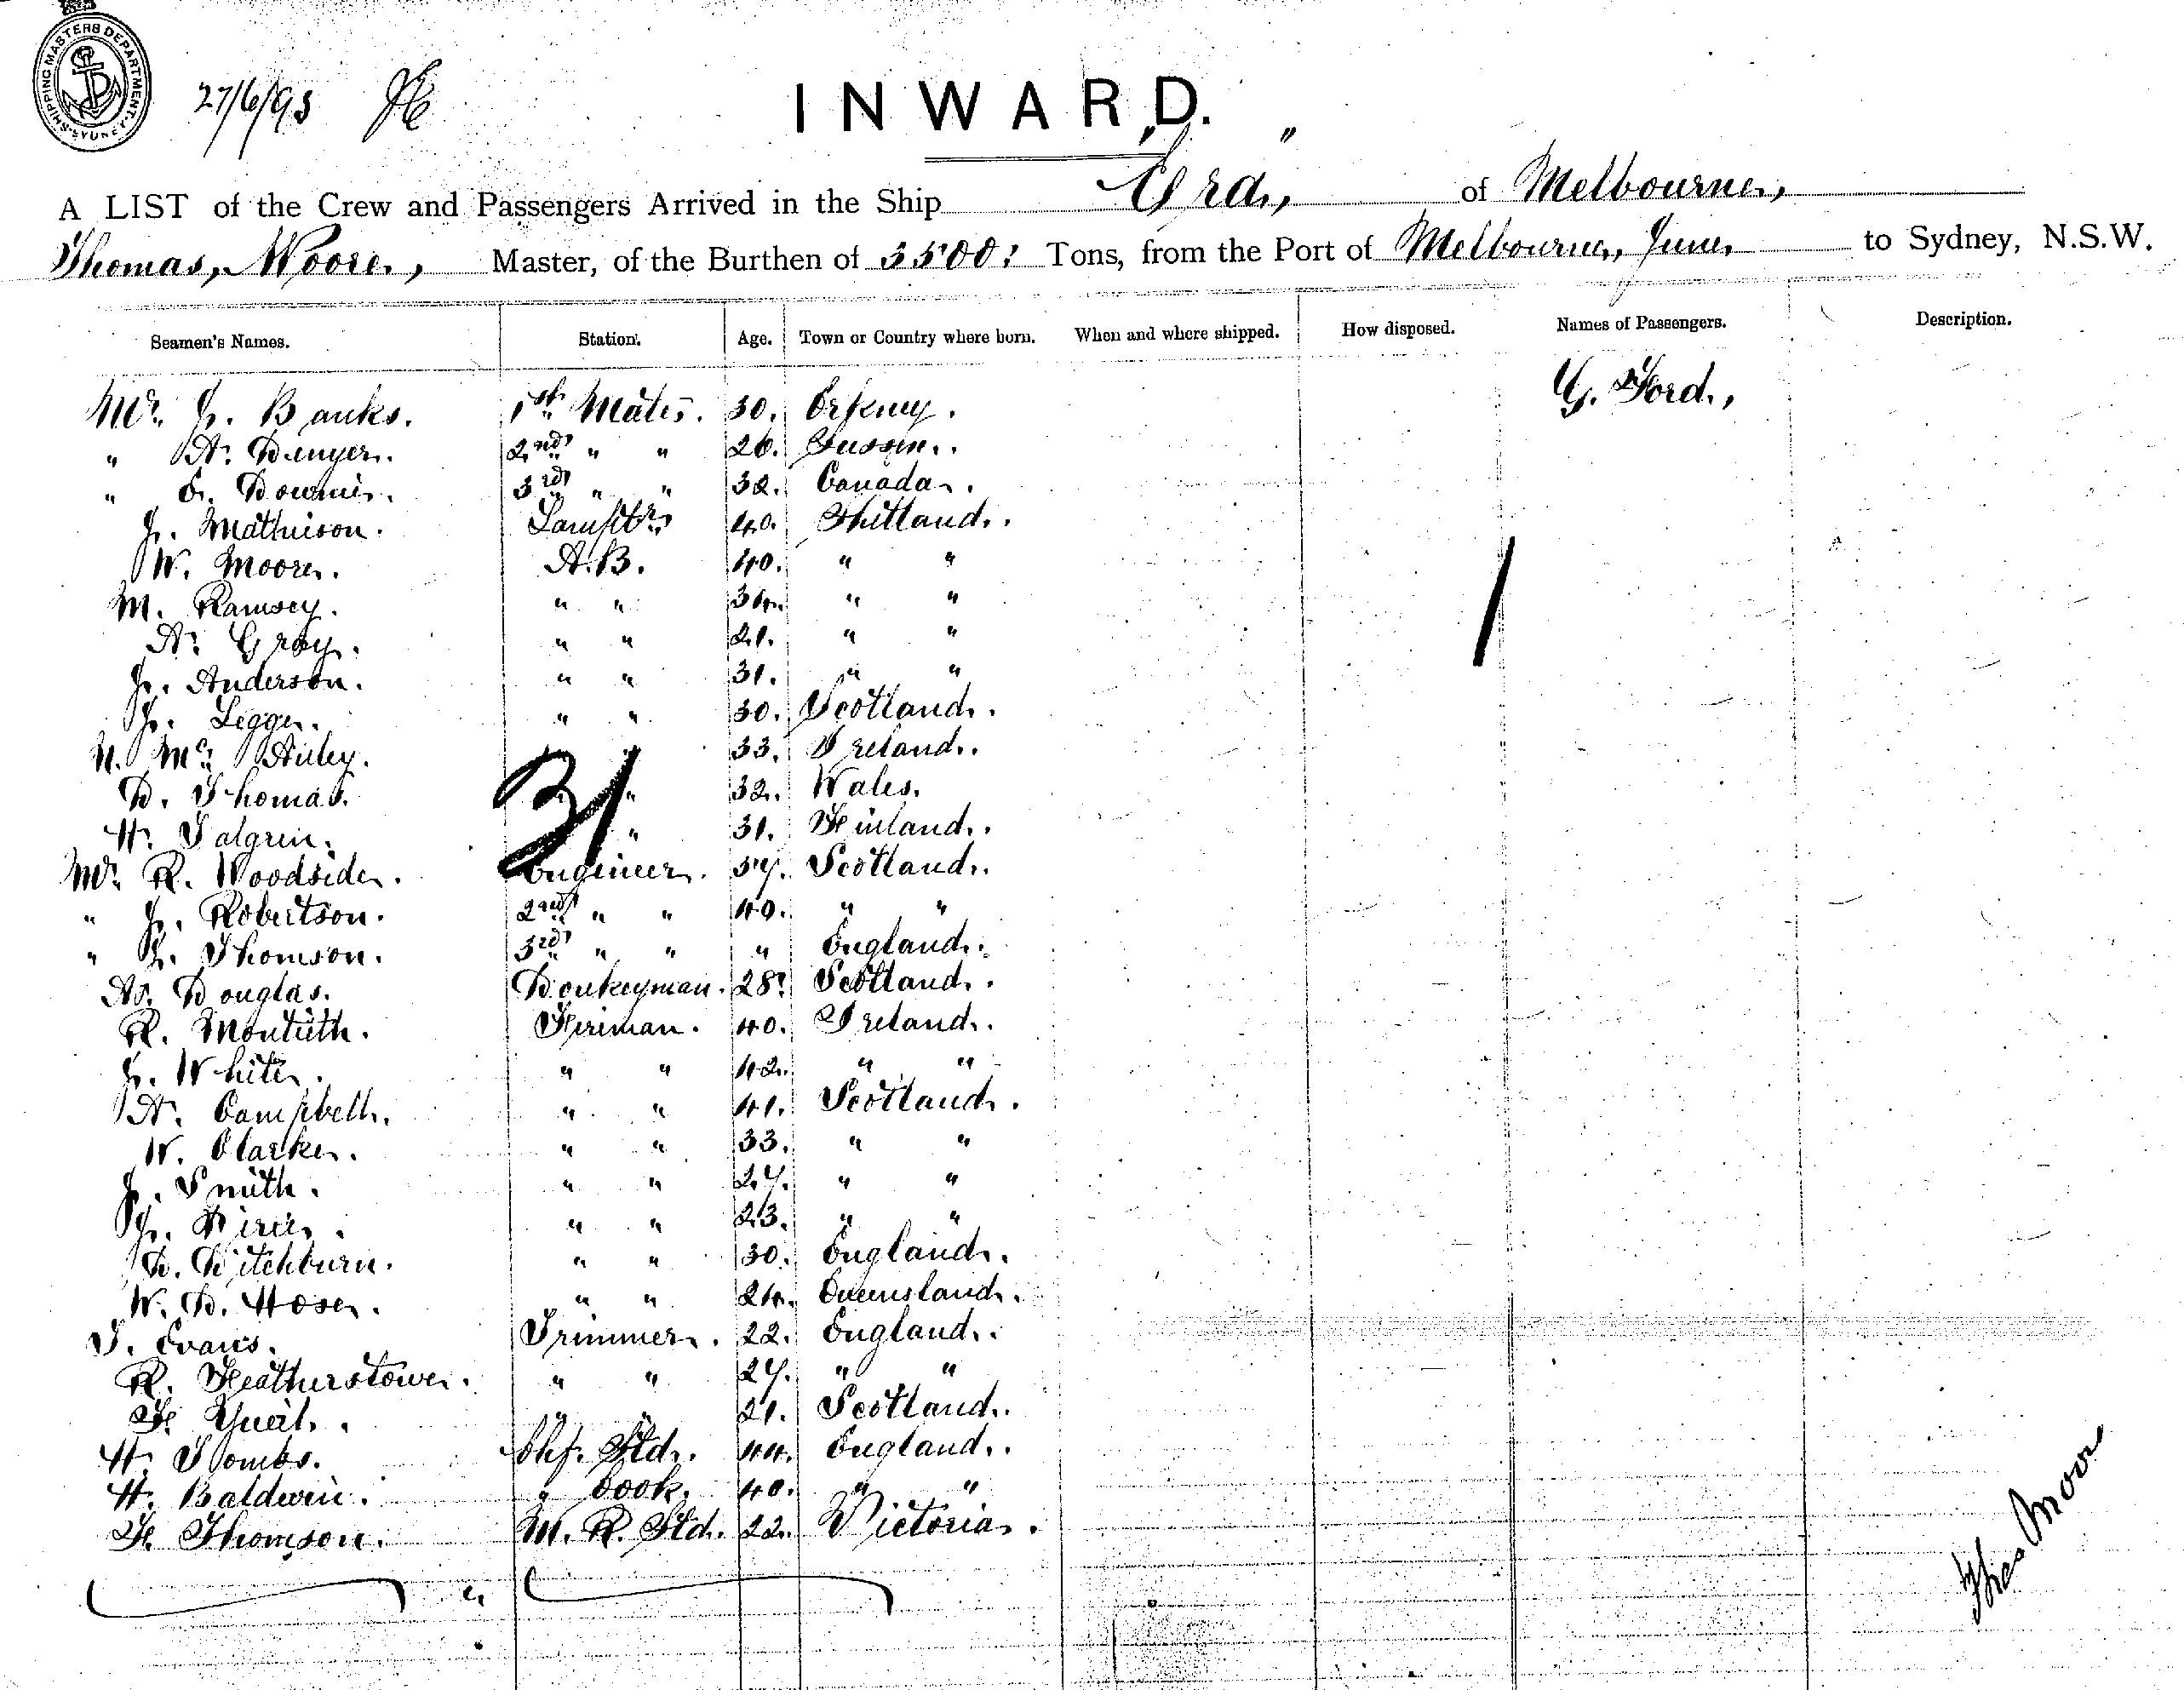 SHIPPING MASTERS DEPARTMENT SYDNEY
27/6/93
INWARD.
A LIST of the Crew and Passengers Arrived in the Ship "Gerda" of Melbourne,
Thomas, Moore, Master, of the Burthen of 3500: Tons, from the Port of Melbourne, June, to Sydney, N.S.W.
Seamen's Names. Station. Age. Town or Country where born. When and where shipped. How disposed. Names of Passengers. Description.
Mr. J. Banks. 1st Mate. 30. Orkney. G. Ford.,
" A. Denyer. 2nd " " 26. Sussex.
" C. Downie. 3rd " " 32. Canada.
J. Mathieson. Lamptr. 40. Shetland.
W. Moore. A.B. 40. " "
M. Ramsey. " " 34. " "
A. Gray. " " 21. " "
J. Anderson. " " 31. " "
J. Legge. " " 30. Scotland.
N. Mc Auley. 33. Ireland.
D. Thomas. " 32. Wales.
H. Salgrin. " 31. Finland.
31
Mr. R. Woodside. Engineer. 37. Scotland.
" J. Robertson. 2nd " " 40. " "
" R. Thomson. 3rd " " " England.
A. Douglas. Donkeyman. 28. Scotland.
R. Montieth. Fireman. 40. Ireland.
J. White. " " 42. " "
A. Campbell. " " 41. Scotland.
W. Clarke. " " 33. " "
J. Smith. " " 27. " "
J. Pirie. " " 23. " "
D. Ditchburn. " " 30. England.
W. D. Hose. " " 24. Queensland.
T. Evans. Trimmer. 22. England.
R. Featherstowe. " " 27. " "
F. Queil. " " 21. Scotland.
H. Tombs. Chf. Std. 44. England.
H. Baldwin. " Cook. 40. " "
F. Thomson. M. R. Std. 22. Victoria.
Thos Moore